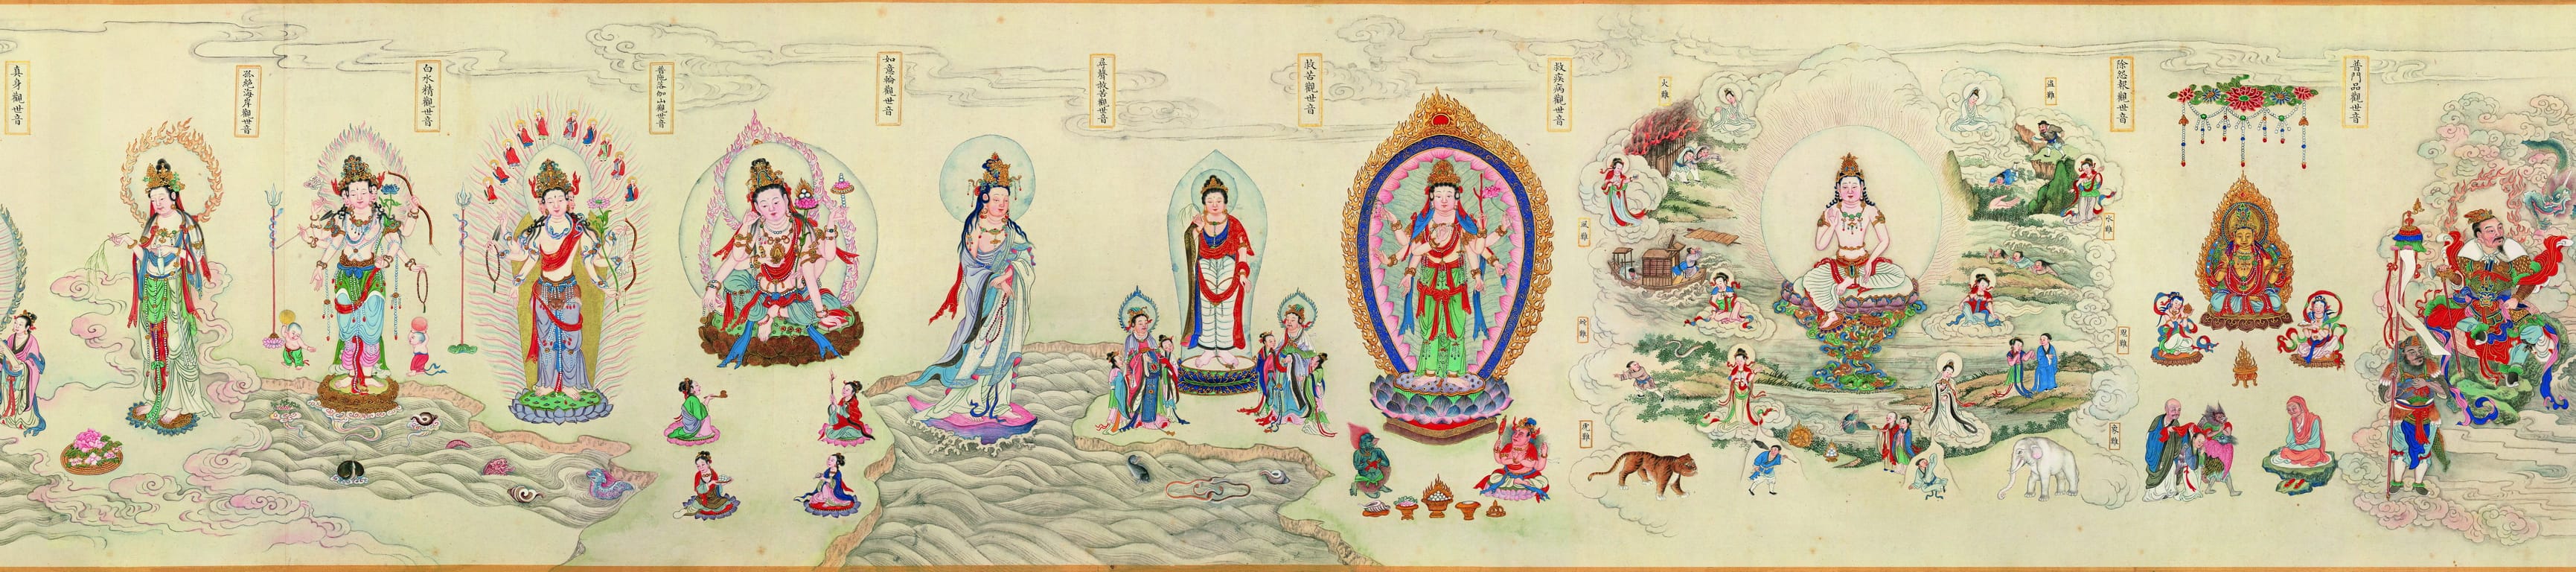 普門品觀世音
除怨報觀世音
水難
象難
火難
風難
虎難
救疾病觀世音
救苦觀世音
尋聲救苦觀世音
如意輪觀世音
普陁落伽山觀世音
白水精觀世音
孤絶海岸觀世音
真身觀世音